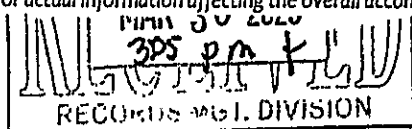 of actual information affecting the overall accom
MAR 30 2020
305 pm
RECEIVED
RECORDS MGT. DIVISION